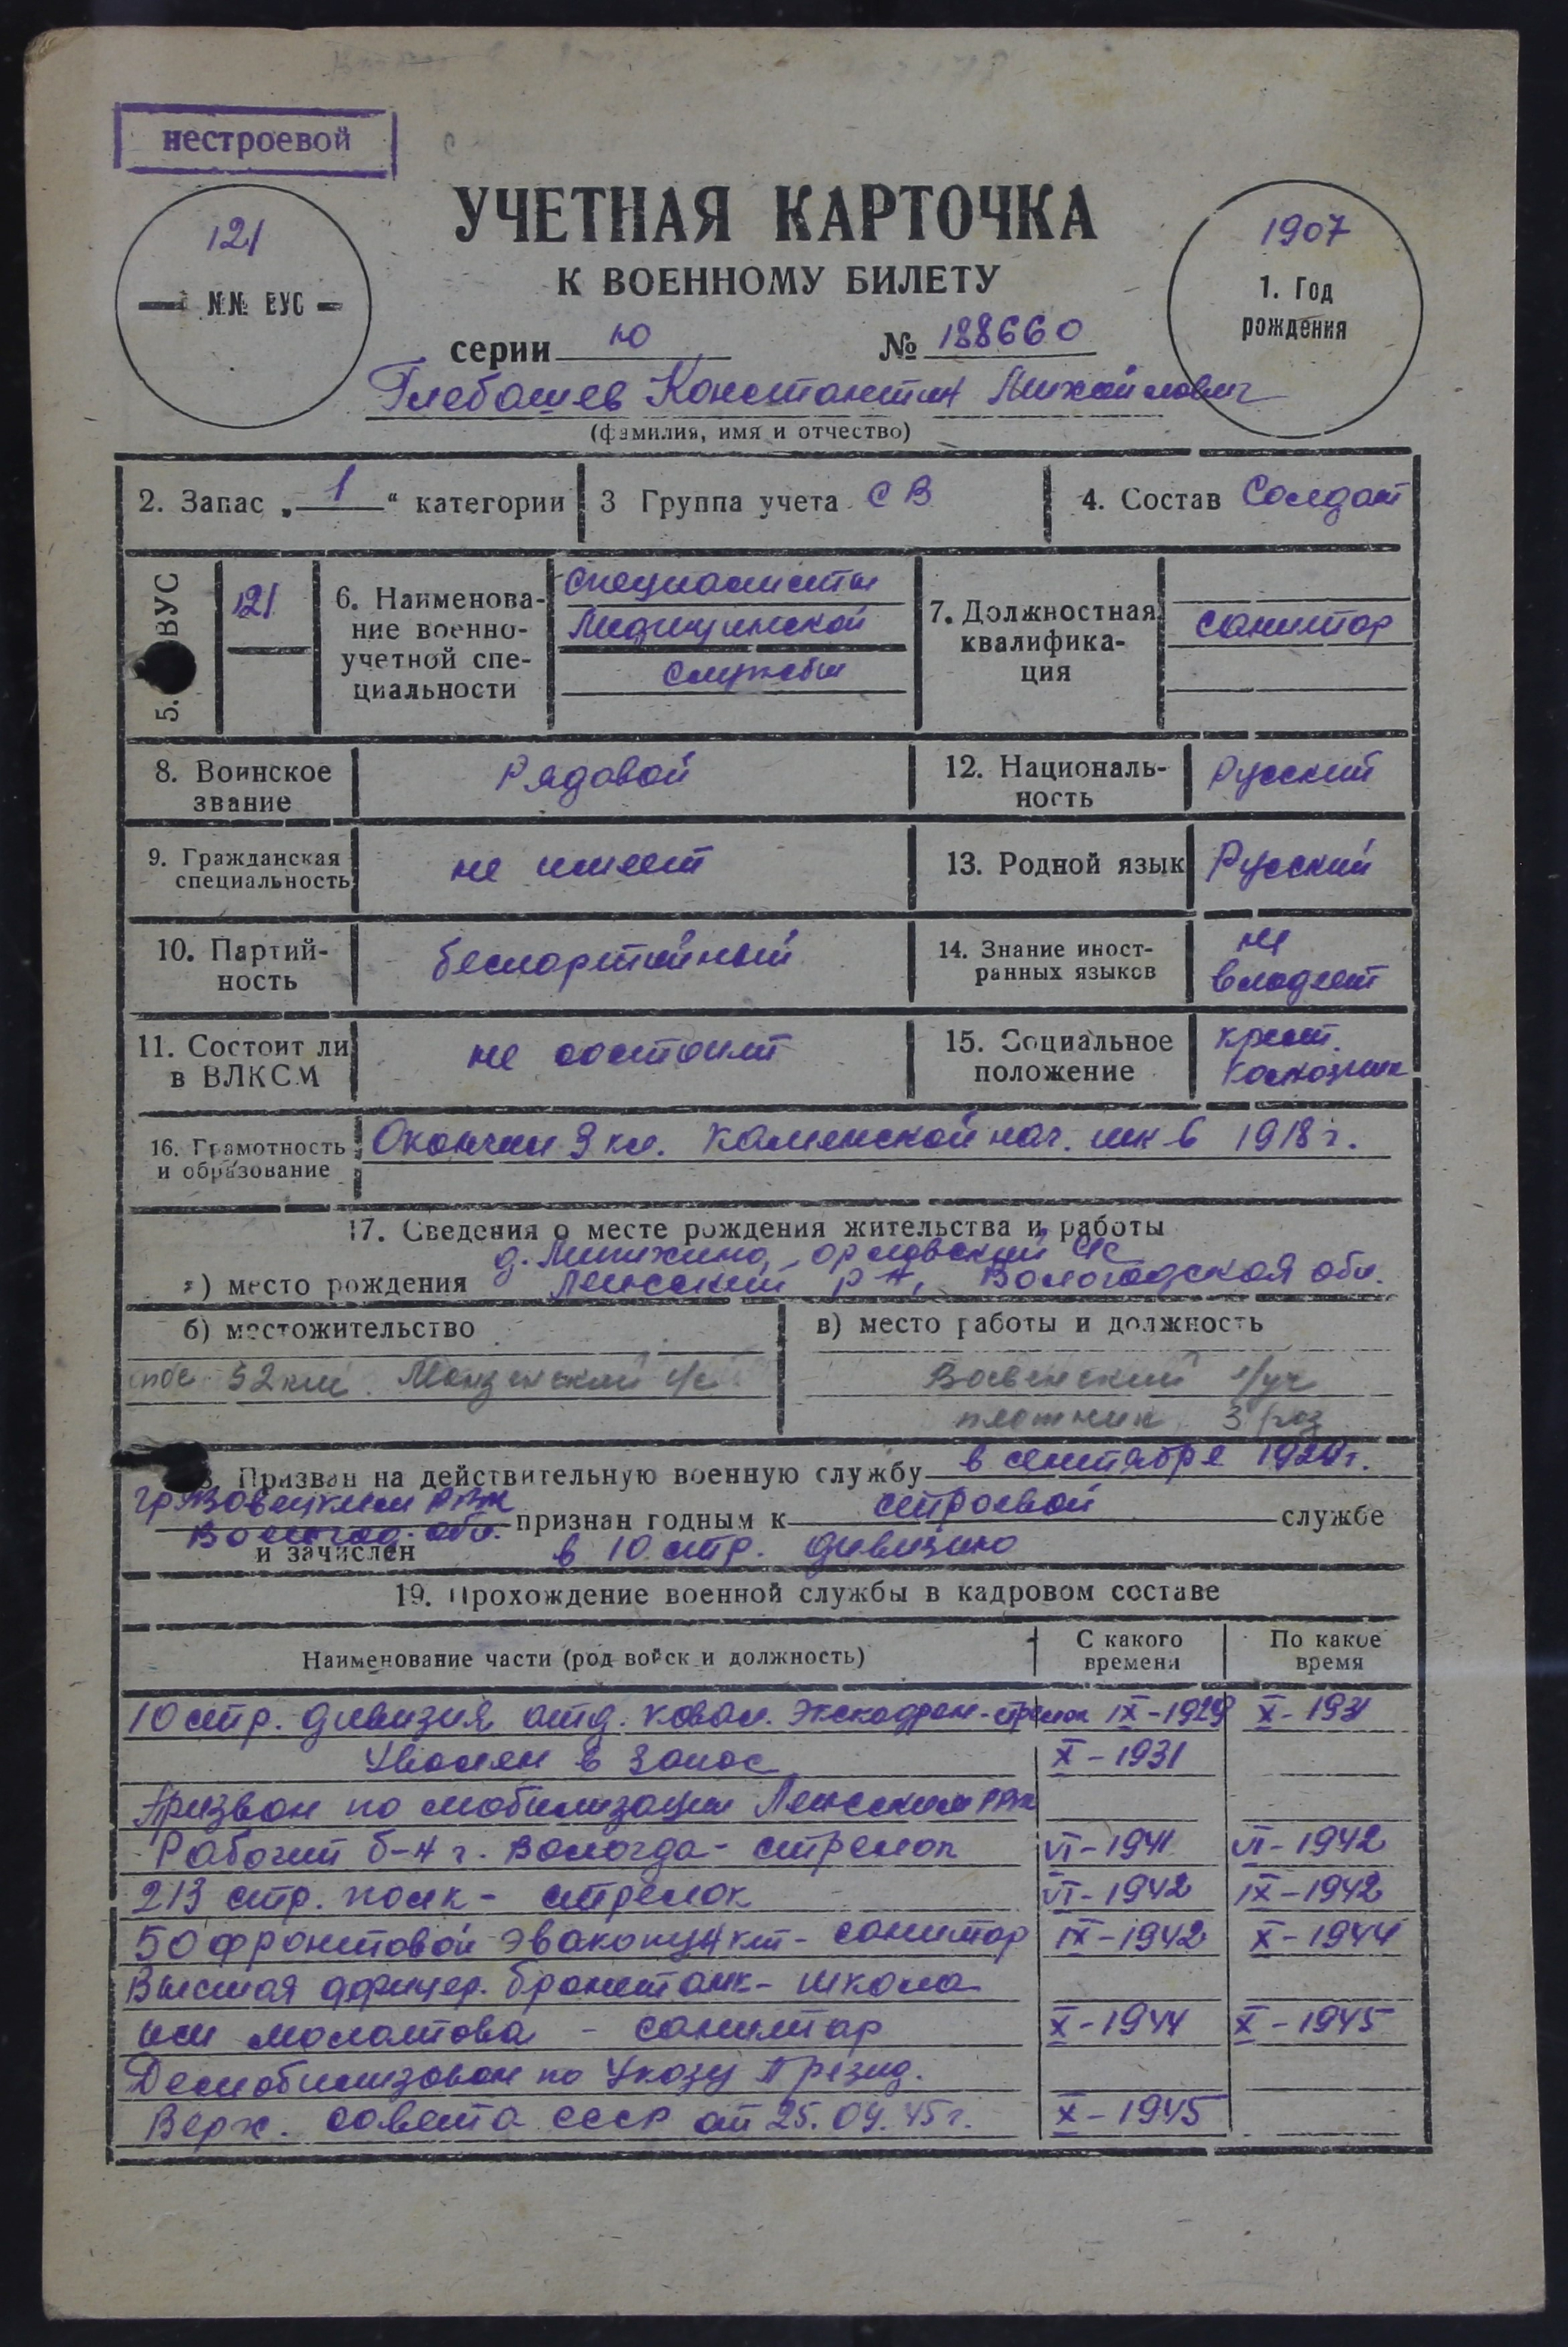 нестроевой
121
№№ ВУС
УЧЕТНАЯ КАРТОЧКА
К ВОЕННОМУ БИЛЕТУ
серии Ю № 188660
1907
1. Год
рождения
Глебашев Константин Михайлович
(фамилия, имя и отчество)
2. Запас „ 1 “ категории
3 Группа учета СВ
4. Состав Солдат
5. ВУС
121
6. Наименова-
ние военно-
учетной спе-
циальности
специалисты
Медицинской
Службы
7. Должностная
квалифика-
ция
санитар
8. Воинское
звание
Рядовой
12. Националь-
ность
Русский
9. Гражданская
специальность
не имеет
13. Родной язык
Русский
10. Партий-
ность
беспартийный
14. Знание иност-
ранных языков
не
владеет
11. Состоит ли
в ВЛКСМ
не состоит
15. Социальное
положение
крест.
колхозник
16. Грамотность
и образование
Окончил 3 кл. Каменской нач. шк в 1918 г.
17. Сведения о месте рождения жительства и работы
д. орловский с/с
а) место рождения Лежский р-н, Вологодская обл.
б) местожительство
пос. 52 км. Монзенский с/с
в) место работы и должность
л/уч
плотник 3 раз
18. Призван на действительную военную службу в сентябре 1929 г.
Грязовецким РВК
Вологод. обл. признан годным к строевой службе
и зачислен в 10 стр. дивизию
19. Прохождение военной службы в кадровом составе
Наименование части (род войск и должность)
С какого
времени
По какое
время
10 стр. дивизия отд. кавал. Экскадрон - стрелок IX-1929 X-1931
Уволен в запас X-1931
Призван по мобилизации Лежским РВК
Рабочий б-н г. Вологда - стрелок VI-1941 VI-1942
213 стр. полк - стрелок VI-1942 IX-1942
50 фронтовой эвакопункт - санитар IX-1942 X-1944
Высшая офицер. бронетанк - школа
им молотова - санитар X-1944 X-1945
Демобилизован по Указу Презид.
Верх. совета СССР от 25.09.45 г. X-1945